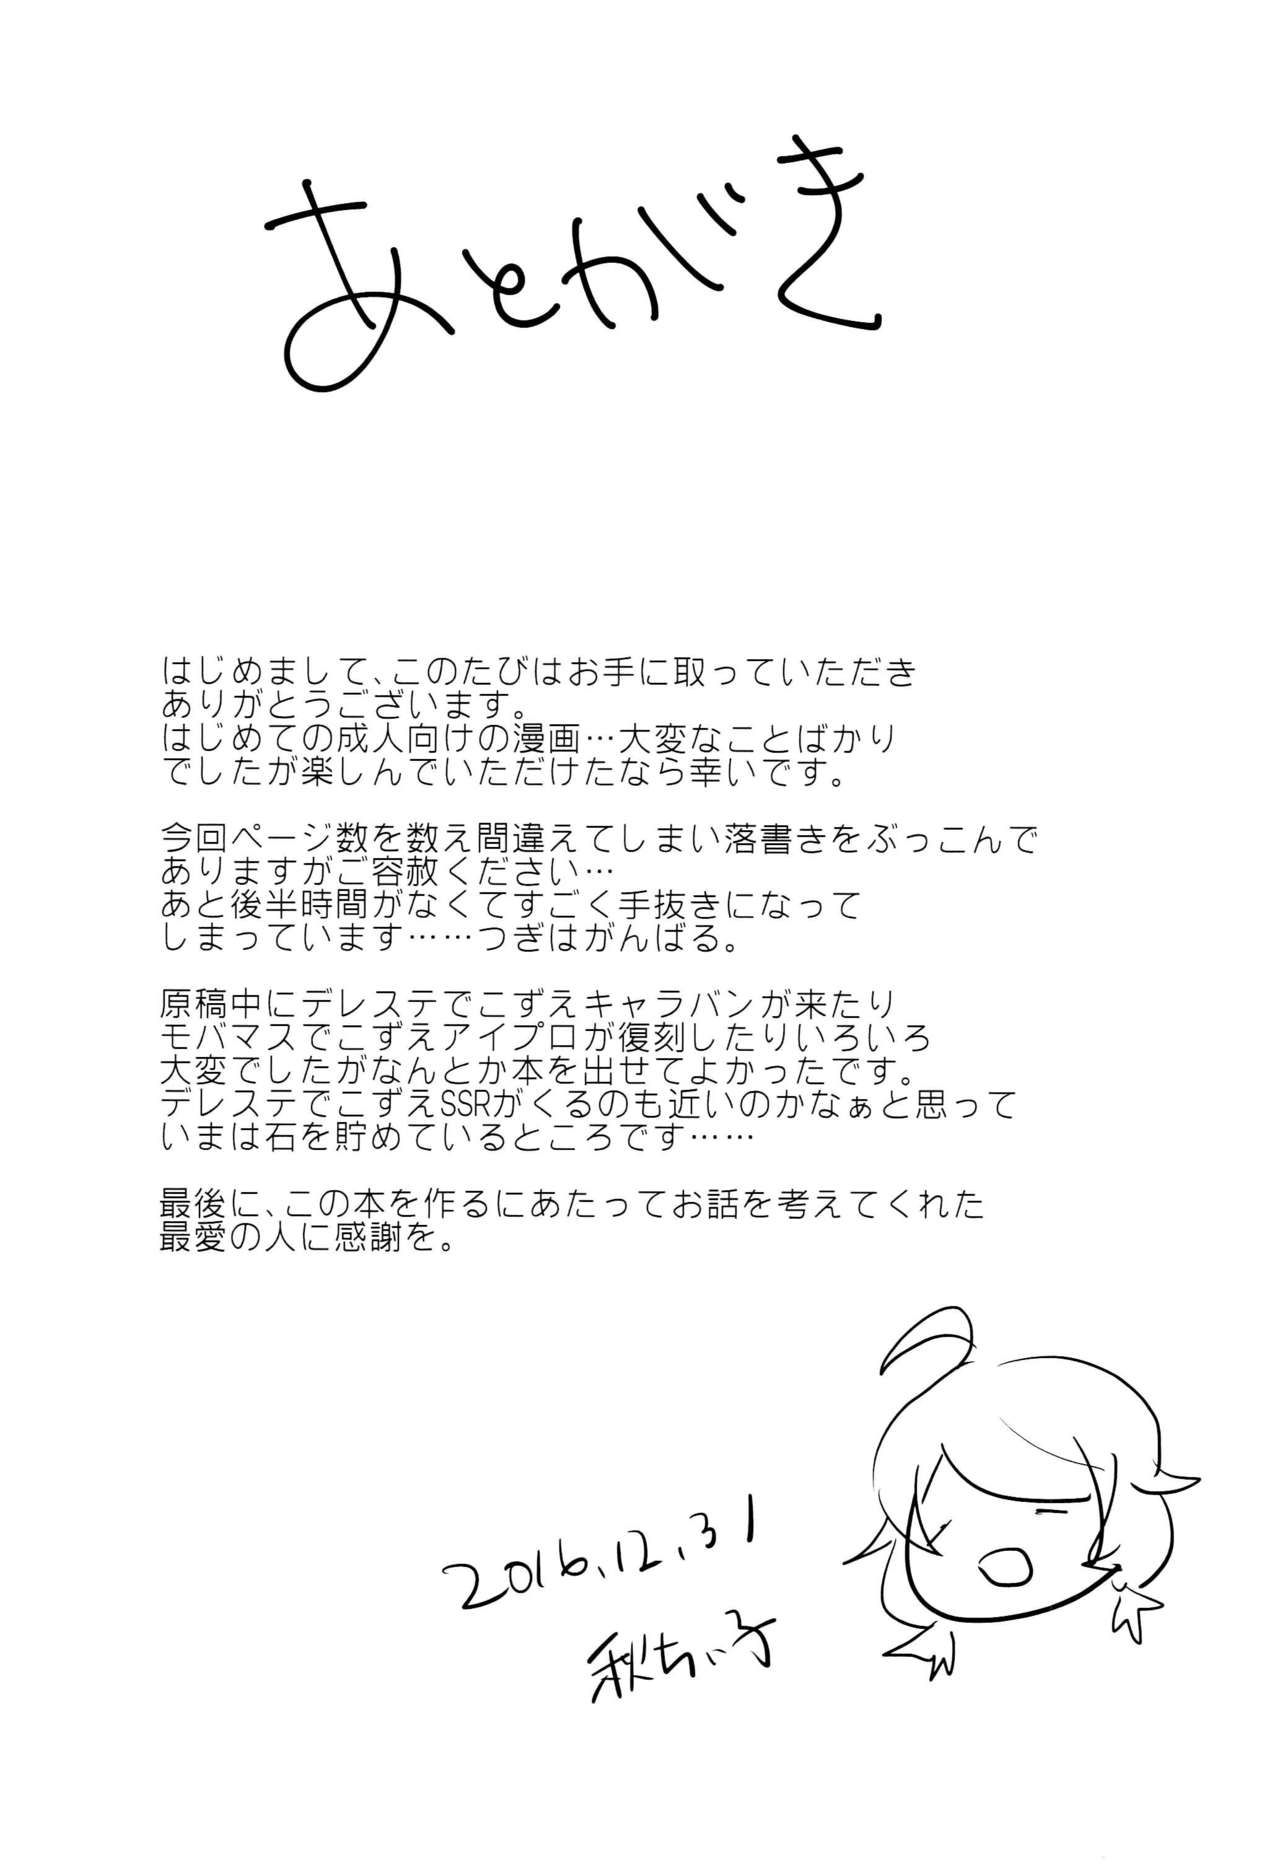 あとがき
はじめまして、このたびはお手に取っていただき
ありがとうございます。
はじめての成人向けの漫画…大変なことばかり
でしたが楽しんでいただけたなら幸いです。
今回ページ数を数え間違えてしまい落書きをぶっこんで
ありますがご容赦ください…
あと後半時間がなくてすごく手抜きになって
しまっています……つぎはがんばる。
原稿中にデレステでこずえキャラバンが来たり
モバマスでこずえアイプロが復刻したりいろいろ
大変でしたがなんとか本を出せてよかったです。
デレステでこずえSSRがくるのも近いのかなぁと思って
いまは石を貯めているところです……
最後に、この本を作るにあたってお話を考えてくれた
最愛の人に感謝を。
2016.12.31
秋ちぃ子